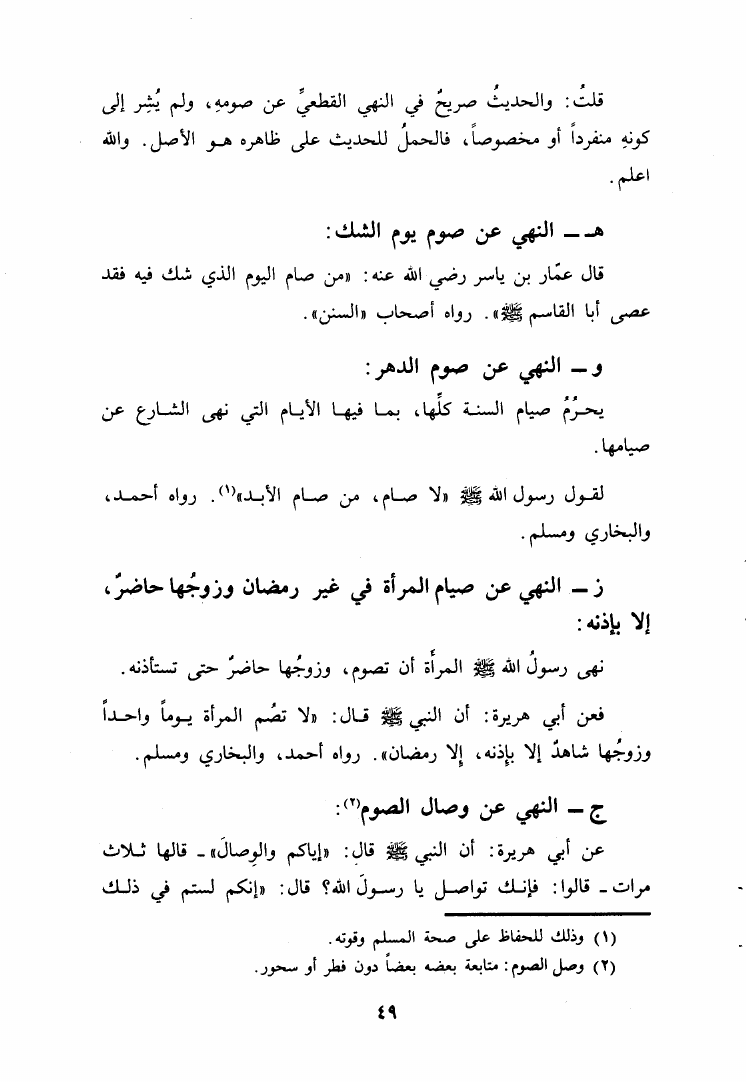 قلتُ: والحديثُ صريحٌ في النهي القطعيِّ عن صومهِ، ولم يُشِر إلى
كونهِ منفرداً أو مخصوصاً، فالحملُ للحديث على ظاهره هـو الأصل. والله
اعلم.
هـ ـ النهي عن صوم يوم الشك:
قال عمّار بن ياسر رضي الله عنه: «من صام اليوم الذي شك فيه فقد
عصى أبا القاسم ﷺ». رواه أصحاب «السنن».
و ـ النهي عن صوم الدهر:
يحـرُمُ صيام السنـة كلِّها، بمـا فيهـا الأيـام التي نهى الشـارع عن
صيامها.
لقـول رسول الله ﷺ «لا صـام، من صـام الأبـد»(١). رواه أحمـد،
والبخاري ومسلم.
ز ـ النهي عن صيام المرأة في غير رمضان وزوجُها حاضرٌ،
إلا بإذنه:
نهى رسولُ الله ﷺ المرأة أن تصوم، وزوجُها حاضرٌ حتى تستأذنه.
فعن أبي هريرة: أن النبي ﷺ قـال: «لا تصُم المرأة يـوماً واحـداً
وزوجُها شاهدٌ إلا بإذنه، إلا رمضان». رواه أحمد، والبخاري ومسلم.
ج ـ النهي عن وصال الصوم(٢):
عن أبي هريرة: أن النبي ﷺ قال: «إياكم والوِصالَ» ـ قالها ثـلاث
مرات ـ قالوا: فإنـك تواصـل يا رسـولَ الله؟ قال: «إنكم لستم في ذلـك
(١) وذلك للحفاظ على صحة المسلم وقوته.
(٢) وصل الصوم: متابعة بعضه بعضاً دون فطر أو سحور.
٤٩